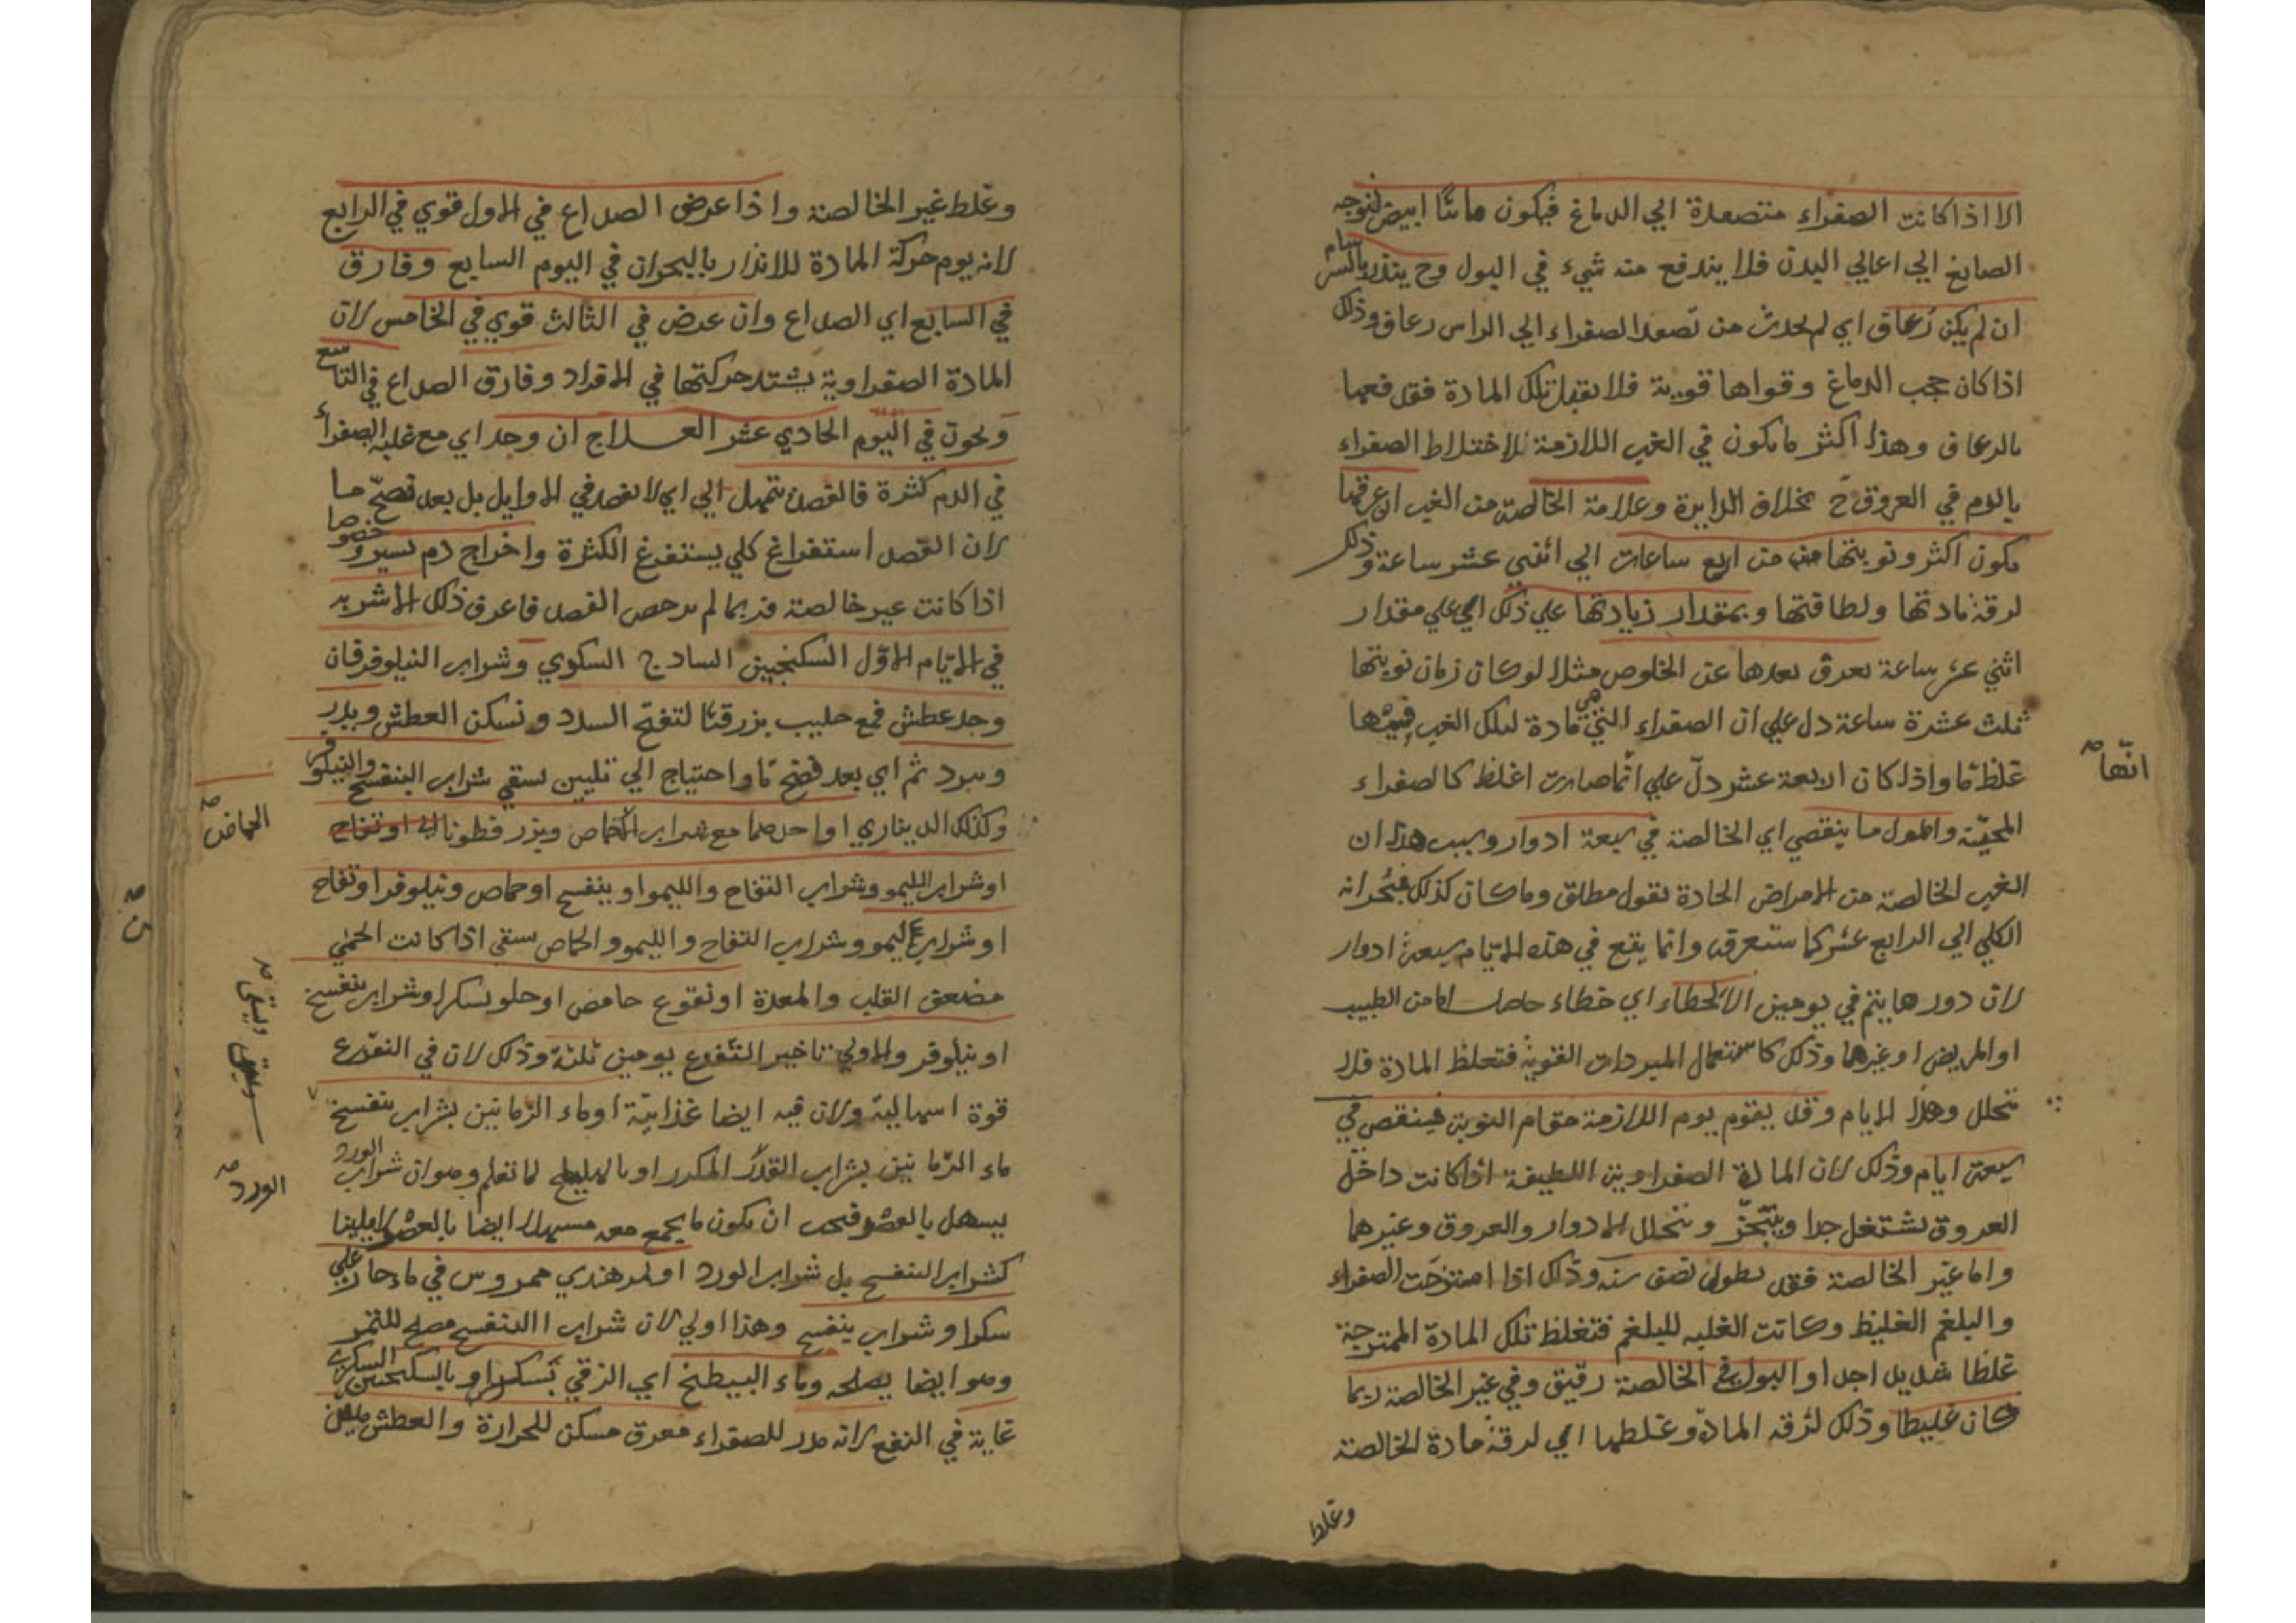 الا اذا كانت الصفراء متصعدة الي الدماغ فيكون مائيا ابيض لتوجه
الصابغ الي اعالي البدن فلا يندفع منه شيء في البول وح ينذر بالسرسام
ان لم يكن رعاق اي لم يحدث من تصعد الصفراء الي الراس رعاق وذلك
اذا كان حجب الدماغ وقواها قوية فلا يقبل تلك المادة فتدفعها
بالرعاق وهذا اكثر ما يكون في الغب اللازمة لاختلاط الصفراء
بالدم في العروق ح بخلاف الدايرة وعلامة الخالصة من الغب ان عرقها
يكون اكثر ونوبتها من اربع ساعات الي اثني عشر ساعة وذلك
لرقة مادتها ولطافتها وبمقدار زيادتها علي ذلك اي علي مقدار
اثني عشر ساعة يعرف بعدها عن الخلوص مثلا لو كان زمان نوبتها
ثلث عشرة ساعة دل علي ان الصفراء التي هي مادة لتلك الغب فيها
غلظ ما واذا كان اربعة عشر دل علي انها صارت اغلظ كالصفراء
المحية واطول ما ينقضي اي الخالصة في سبعة ادوار وسبب هذا ان
الغب الخالصة من الامراض الحادة بقول مطلق وما كان كذلك فبحرانه
الكلي الي الرابع عشر كما ستعرف وانما يقع في هذه الايام سبعة ادوار
لان دورها يتم في يومين الا لخطاء اي خطاء حاصل اما من الطبيب
او المريض او غيرهما وذلك كاستعمال المبردات القوية فتغلظ المادة فلا
تتحلل وهذا الايام وقد يقوم يوم اللازمة مقام النوبة فينقص في
سبعة ايام وذلك لان المادة الصفراوية اللطيفة اذا كانت داخل
العروق تشتغل جدا ويتبخر وتتحلل الادوار والعروق وغيرها
واما غير الخالصة فقد تطول نصف سنة وذلك اذا امتزجت الصفراء
والبلغم الغليظ وكانت الغلبه للبلغم فتغلظ تلك المادة الممتزجة
غلظا شديدا جدا والبول في الخالصة رقيق وفي غير الخالصة ربما
كان غليظا وذلك لرقه المادة وغلظها اي لرقة مادة الخالصة
وغلظ
انها صح
وغلظ غير الخالصة واذا عرض الصداع في الاول قوي في الرابع
لانه يوم حركة المادة للانذار بالبحران في اليوم السابع وفارق
في السابع اي الصداع وان عرض في الثالث قوي في الخامس لان
المادة الصفراوية يشتد حركتها في الافراد وفارق الصداع في التاسع
ويحون في اليوم الحادي عشر العلاج ان وجد اي مع غلبه الصفراء
في الدم كثرة فالفصد بتمهل الي اي لا يفصد في الاوايل بل بعد نضج ما
لان الفصد استفراغ كلي يستفرغ الكثرة واخراج دم يسير وخصوصا
اذا كانت غير خالصة فربما لم يرخص الفصد فاعرف ذلك الاشربه
في الايام الاول السكنجبين السادج السكري وشراب النيلوفر فان
وجد عطش فمع حليب بزر قثا لتفتح السدد وتسكن العطش ويدر
ويبرد ثم اي بعد نضج ما واحتياج الي تليين يسقي شراب البنفسج والنيلوفر
وكذلك الديناري او احدهما مع شراب الحماض وبزر قطونا او تفاح
او شراب الليمو وشراب التفاح والليمو او بنفسج او حماض ونيلوفر او تفاح
او شراب الليمو وشراب التفاح والليمو والحماض يسقي اذا كانت الحمي
مضعف القلب والمعدة او نقوع حامض او حلو بسكر او شراب بنفسج
او نيلوفر والاولي تاخير التنقوع يومين ثلثة وذلك لان في النقوع
قوة اسهالية ولان فيه ايضا غذايية او ماء الرمانين بشراب بنفسج
ماء الرمانين بشراب القدر المكرر او بالهليلج لما تعلم وهو ان شراب الورد
يسهل بالعصر فيجب ان يكون ما يجمع معه مسهلا ايضا بالعصر لا ملينا
كشراب البنفسج بل شراب الورد او تمر هندي ممروس في ماء حار علي
سكر او شراب بنفسج وهذا اولي لان شراب البنفسج مصلح للتمر
وهو ايضا يصلحه وماء البيطيخ اي الزقي بسكر او بالسكنجبين السكري
غاية في النفع لانه مدر للصفراء معرق مسكن للحرارة والعطش ملين
الحماض صح
الورد صح